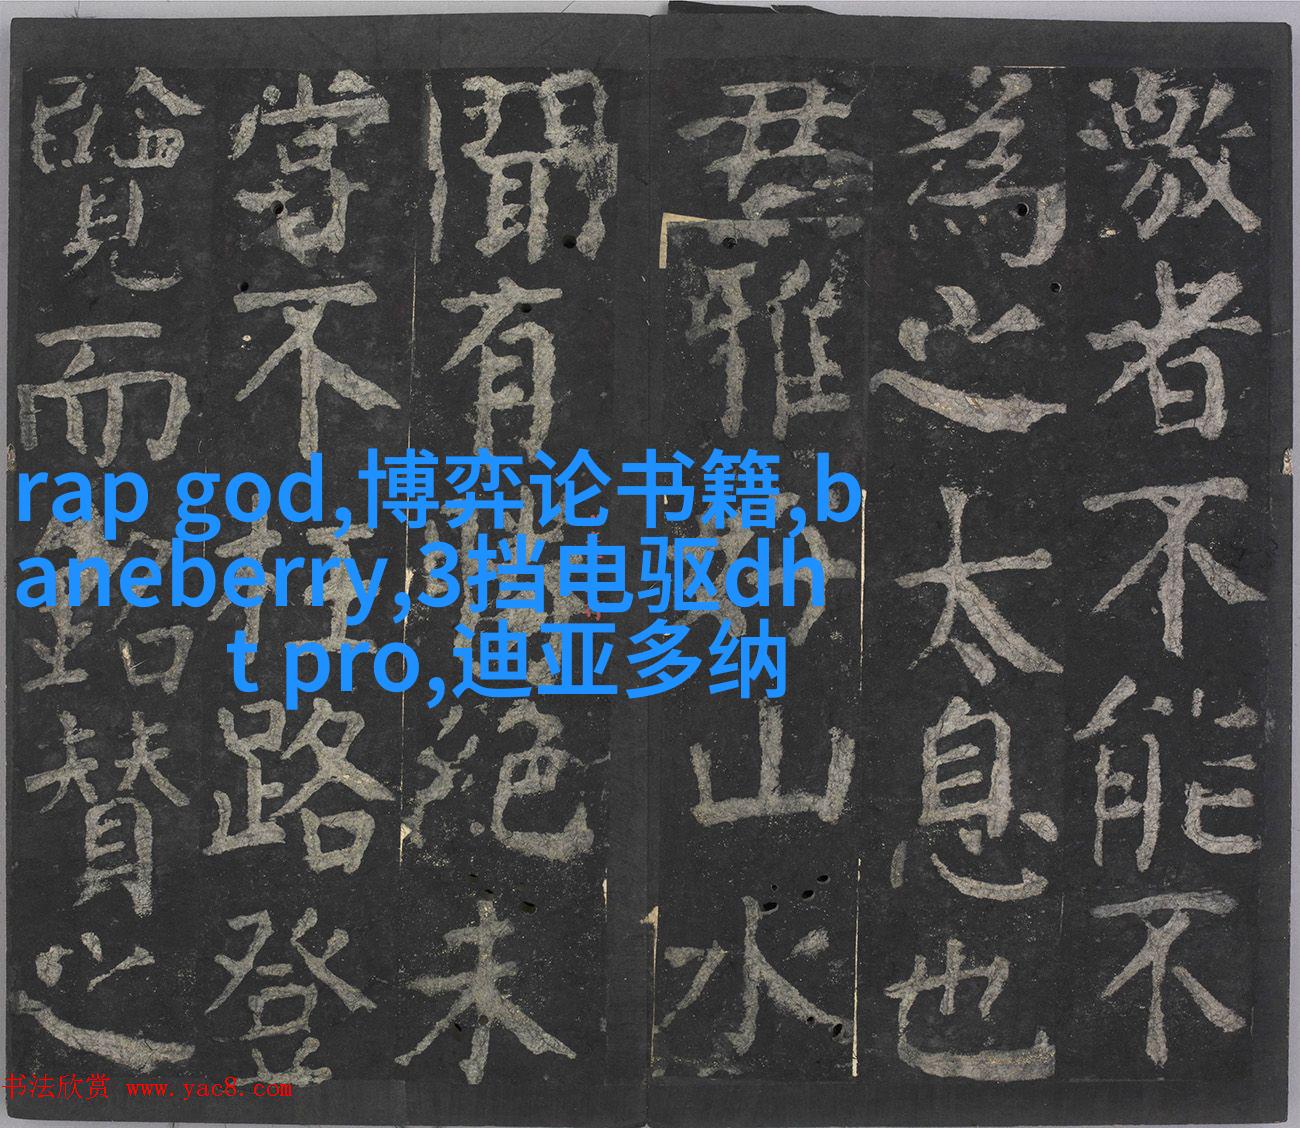 激者不能不
為之太息也
君雅好山水
聞有絕未
嘗不枉路登
覽而銘贊之
rap god,博弈论书籍,b
aneberry,3挡电驱dh
t pro,迪亚多纳
书法欣赏 www.yac8.com